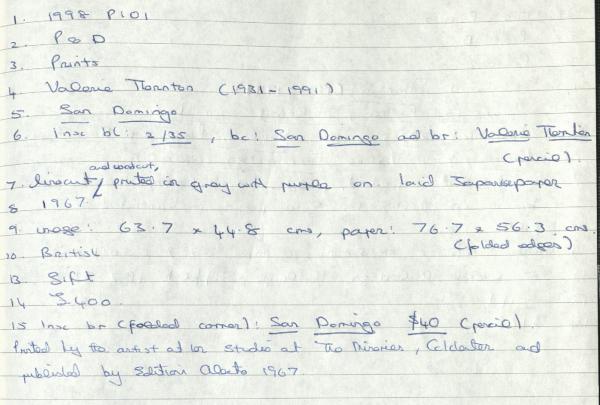 1. 1998 P101
2. P & D
3. Prints
4 Valerie Thornton (1931-1991)
5. San Domingo
6. Insc bl: 2/35, bc: San Domingo ad br: Valerie Thornton
(pencil).
and woodcut,
7. linocut / printed in grey with purple on laid Japanese paper
8 1967.
9 image: 63.7 x 44.8 cms, paper: 76.7 x 56.3 cms.
(folded edges)
10 British
13 Gift
14 £400.
15 Insc br (folded corner): San Domingo $40 (pencil).
Printed by the artist at her studio at The , ad
published by Edition Alecto 1967.